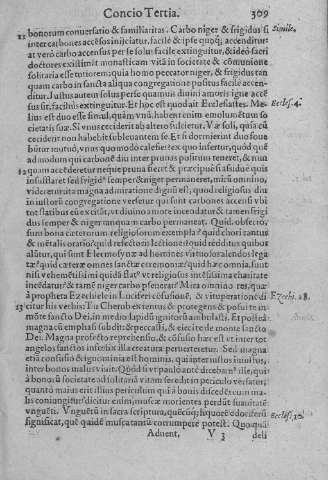 Concio Tertia. 309
11 bonorum conuersatio & familiaritas. Carbo niger & frigidus si Simile.
inter carbones accẽsos inijciatur, facilè & ipse quoq; accenditur:
at verò carbo accensus per se solus facile extinguitur, & ideò sacri
doctores existimãt monasticam vitã in societate & cõmunione
solitaria esse tutiorem: quia homo peccator niger, & frigidus tan
quam carbo in sancta aliqua congregatione positus facilè accen-
ditur. Iustus autem solus per se quamuis diuini amoris igne accẽ
sus sit, facilius extinguitur. Et hoc est quod ait Ecclesiastes. Me- Eccles. 4.
lius est duo esse simul, quàm vnũ, habent enim emolumẽtum so
cietatis suæ. Si vnus ceciderit ab altero fulcietur. Væ soli, quia cũ
ceciderit non habebit subleuantem se. Et si dormierint duo foue
bũtur mutuò, vnus quomodo calefiet? ex quo infertur, quòd quẽ
ad modum qui carbonẽ diu inter prunas positum teneret, & nun
12 quam accẽderetur neque pruna fieret & præcipuè si assiduè quis
insufflaret sed frigidus semper & niger permaneret, mirũ omnino,
videretur ita magna admiratione dignũ est, quod religiosus diu
in iustorũ congregatione versetur qui sunt carbones accensi vbi
tot flatibus eũ excitãt, vt diuino amore incendatur & tamen frigi
dus semper & niger tanquam carbo permaneat. Quid, obsecrò,
sunt bona cæterorum religiosorum exempla? quid chori cantus
& mẽtalis oratio? quid refectorij lectiones? quid redditus quibus
alũtur, qui sunt Eleemosynæ ad homines virtuosos alendos lega
tæ? quid cæteræ omnes sanctæ ceremoniæ? quid hæc omnia, sunt
nisi vehemẽtissimi quidã flatus vt religiosus intẽsissima charitate
incẽdatur? & tamẽ niger carbo permanet? Mira omnino res, quæ
à propheta Ezechiele in Luciferi cõfusionẽ, & vituperationẽ di- Ezech. 28.
13 citur his verbis: Tu Cherub extentus & protegens & posui te in mõ
te sancto Dei, in medio lapidũ ignitorũ ambulasti. Et posteà:
magna cũ emphasi subdit: & peccasti, & eieci te de monte sancto
Dei. Magna profectò reprehensio, & cõfusio hæc est vt inter tot
angelos sanctos infœlix illa creatura peruerteretur. Sed magna
etiã confusio & ignominia est hominis, qui inter iustos iniustus,
inter bonos malus viuit. Quòd si vt paulò antè dicebamus ille, qui
à bonorũ societate ad solitariã vitam feredit in periculo versatur,
quantò maius erit illius periculum qui à bonis discedẽs cum ma-
lis coniungitur? dicitur enim, muscæ morientes perdũt suauitatẽ
vnguẽti. Vnguẽtũ in sacra scriptura, quẽcũq; liquorẽ odoriferũ Eccles. 10.
significat, quẽ quidẽ muscæ tantũ corrumpere potest. Quo quã
Aduent. V 3 deli